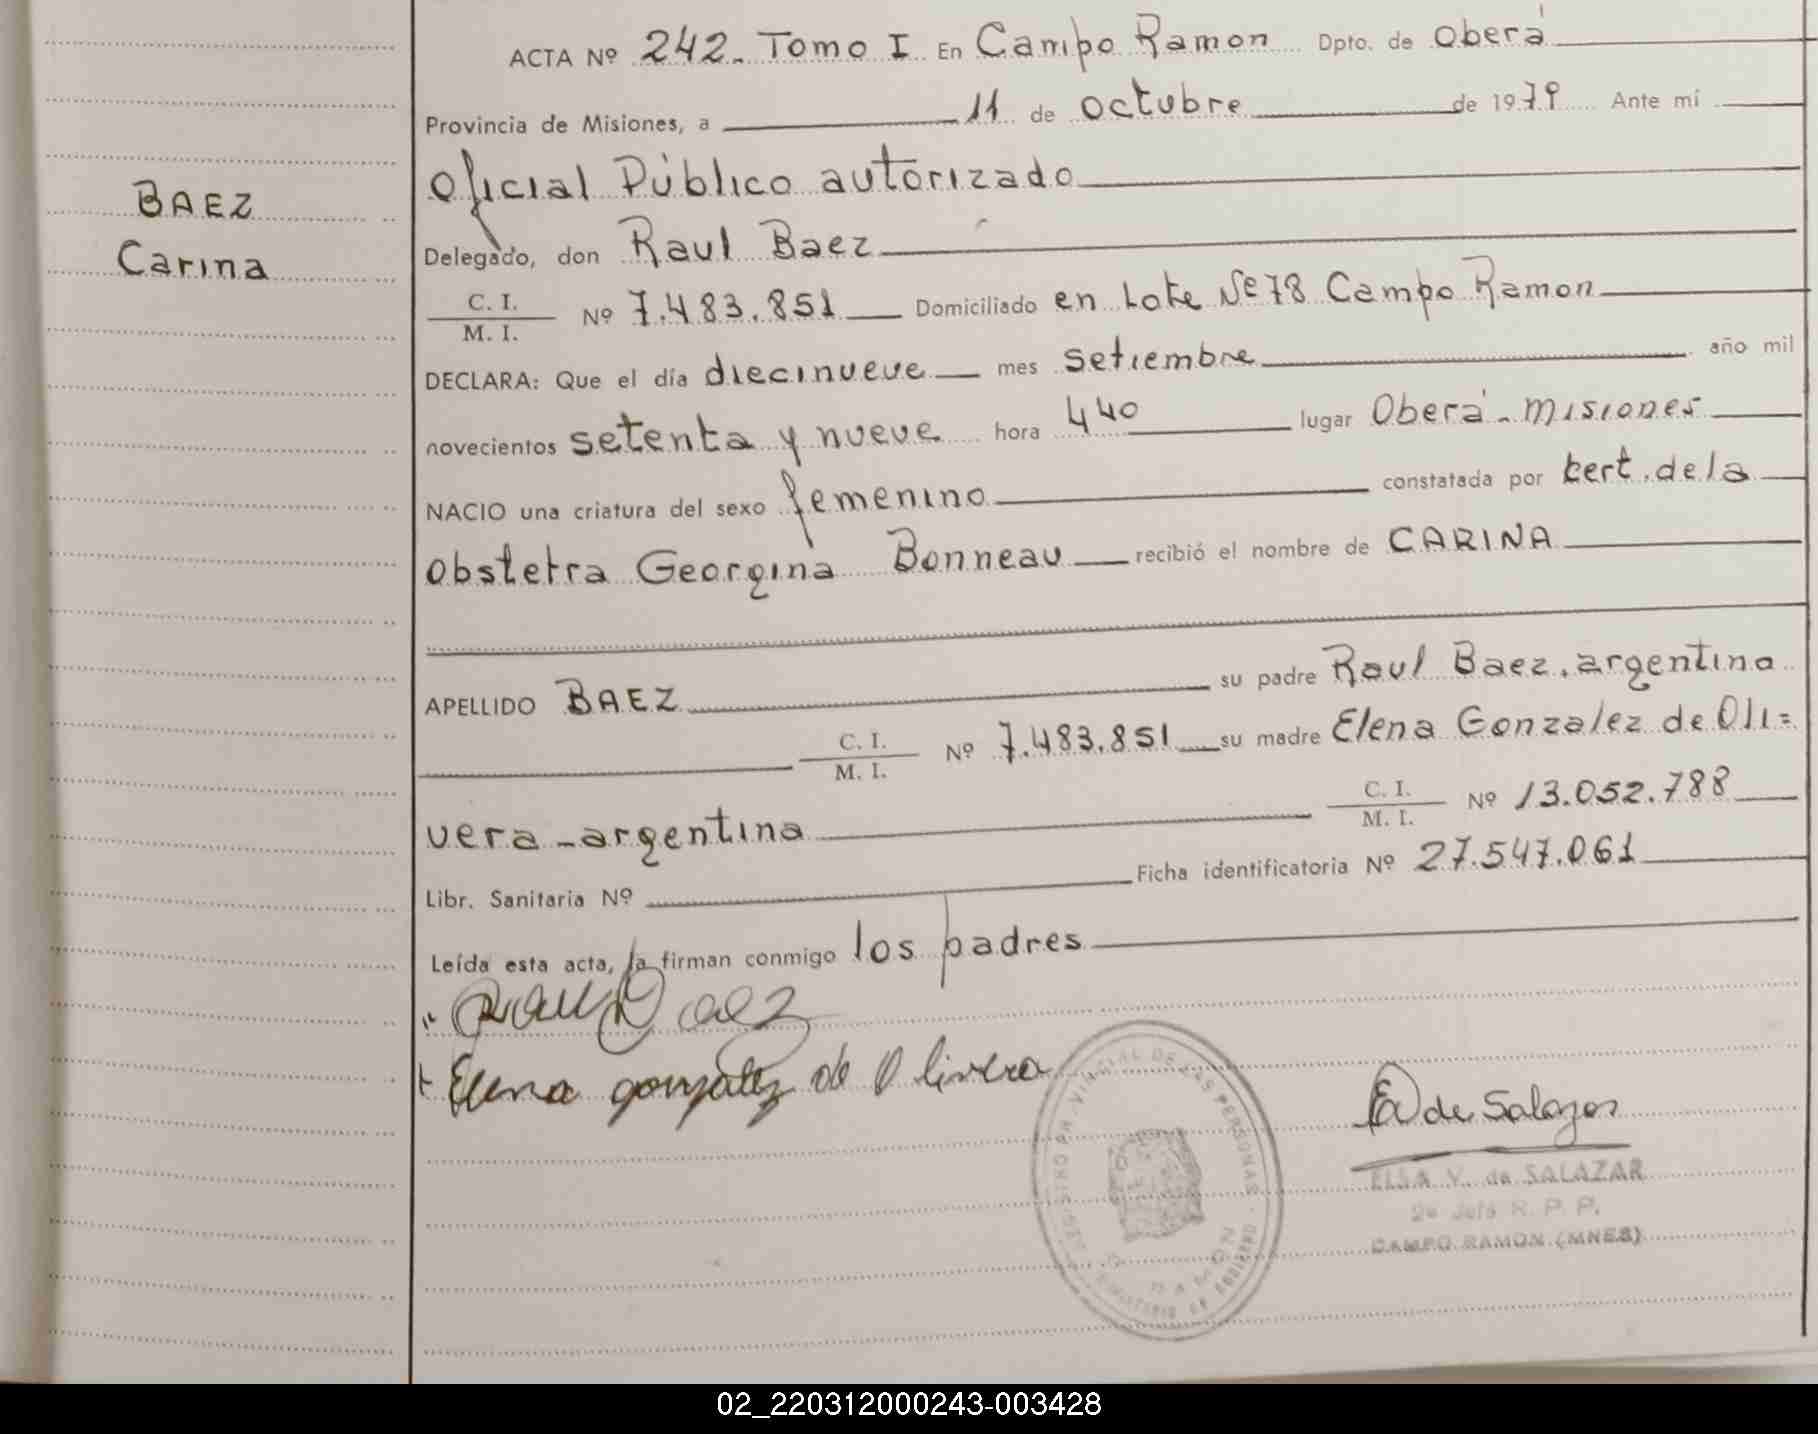 BAEZ
Carina
ACTA Nº 242. Tomo I En Campo Ramon Dpto. de Oberá
Provincia de Misiones, a 11 de octubre de 1979 Ante mí
Oficial Público autorizado
Delegado, don Raul Baez
C. I.
M. I. Nº 7.483.851 Domiciliado en Lote Nº 78 Campo Ramon
DECLARA: Que el día diecinueve mes setiembre año mil
novecientos setenta y nueve hora 440 lugar Oberá - Misiones
NACIO una criatura del sexo femenino constatada por cert. de la
obstetra Georgina Bonneau recibió el nombre de CARINA
APELLIDO BAEZ su padre Raul Baez, argentino
C. I.
M. I. Nº 7.483.851 su madre Elena Gonzalez de Oli=
vera - argentina C. I.
M. I. Nº 13.052.788
Libr. Sanitaria Nº Ficha identificatoria Nº 27.547.061
Leída esta acta, la firman conmigo los padres
Raul Baez
Elena gonzalez de Olivera
de Salazar
ELSA V. de SALAZAR
2º Jefe R. P. P.
CAMPO RAMON (MNES)
REGISTRO PROVINCIAL DE LAS PERSONAS
MINISTERIO DE GOBIERNO
C. RAMON
02_220312000243-003428